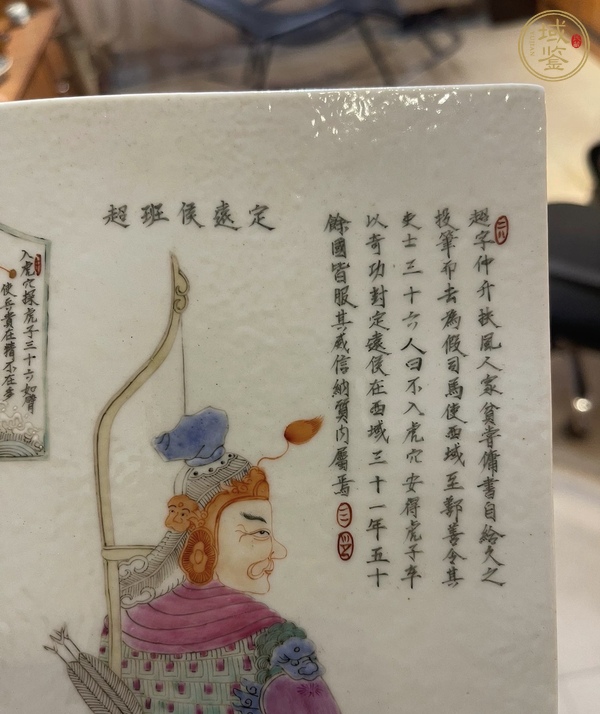 定遠侯班超
超字仲升扶風人家貧嘗傭書自給久之
投筆而去為假司馬使西域至鄯善令其
吏士三十六人曰不入虎穴安得虎子卒
以奇功封定遠侯在西域三十一年五十
餘國皆服其威信納質內屬焉
入虎穴探虎子三十六如臂
使兵貴在精不在多
域鑒